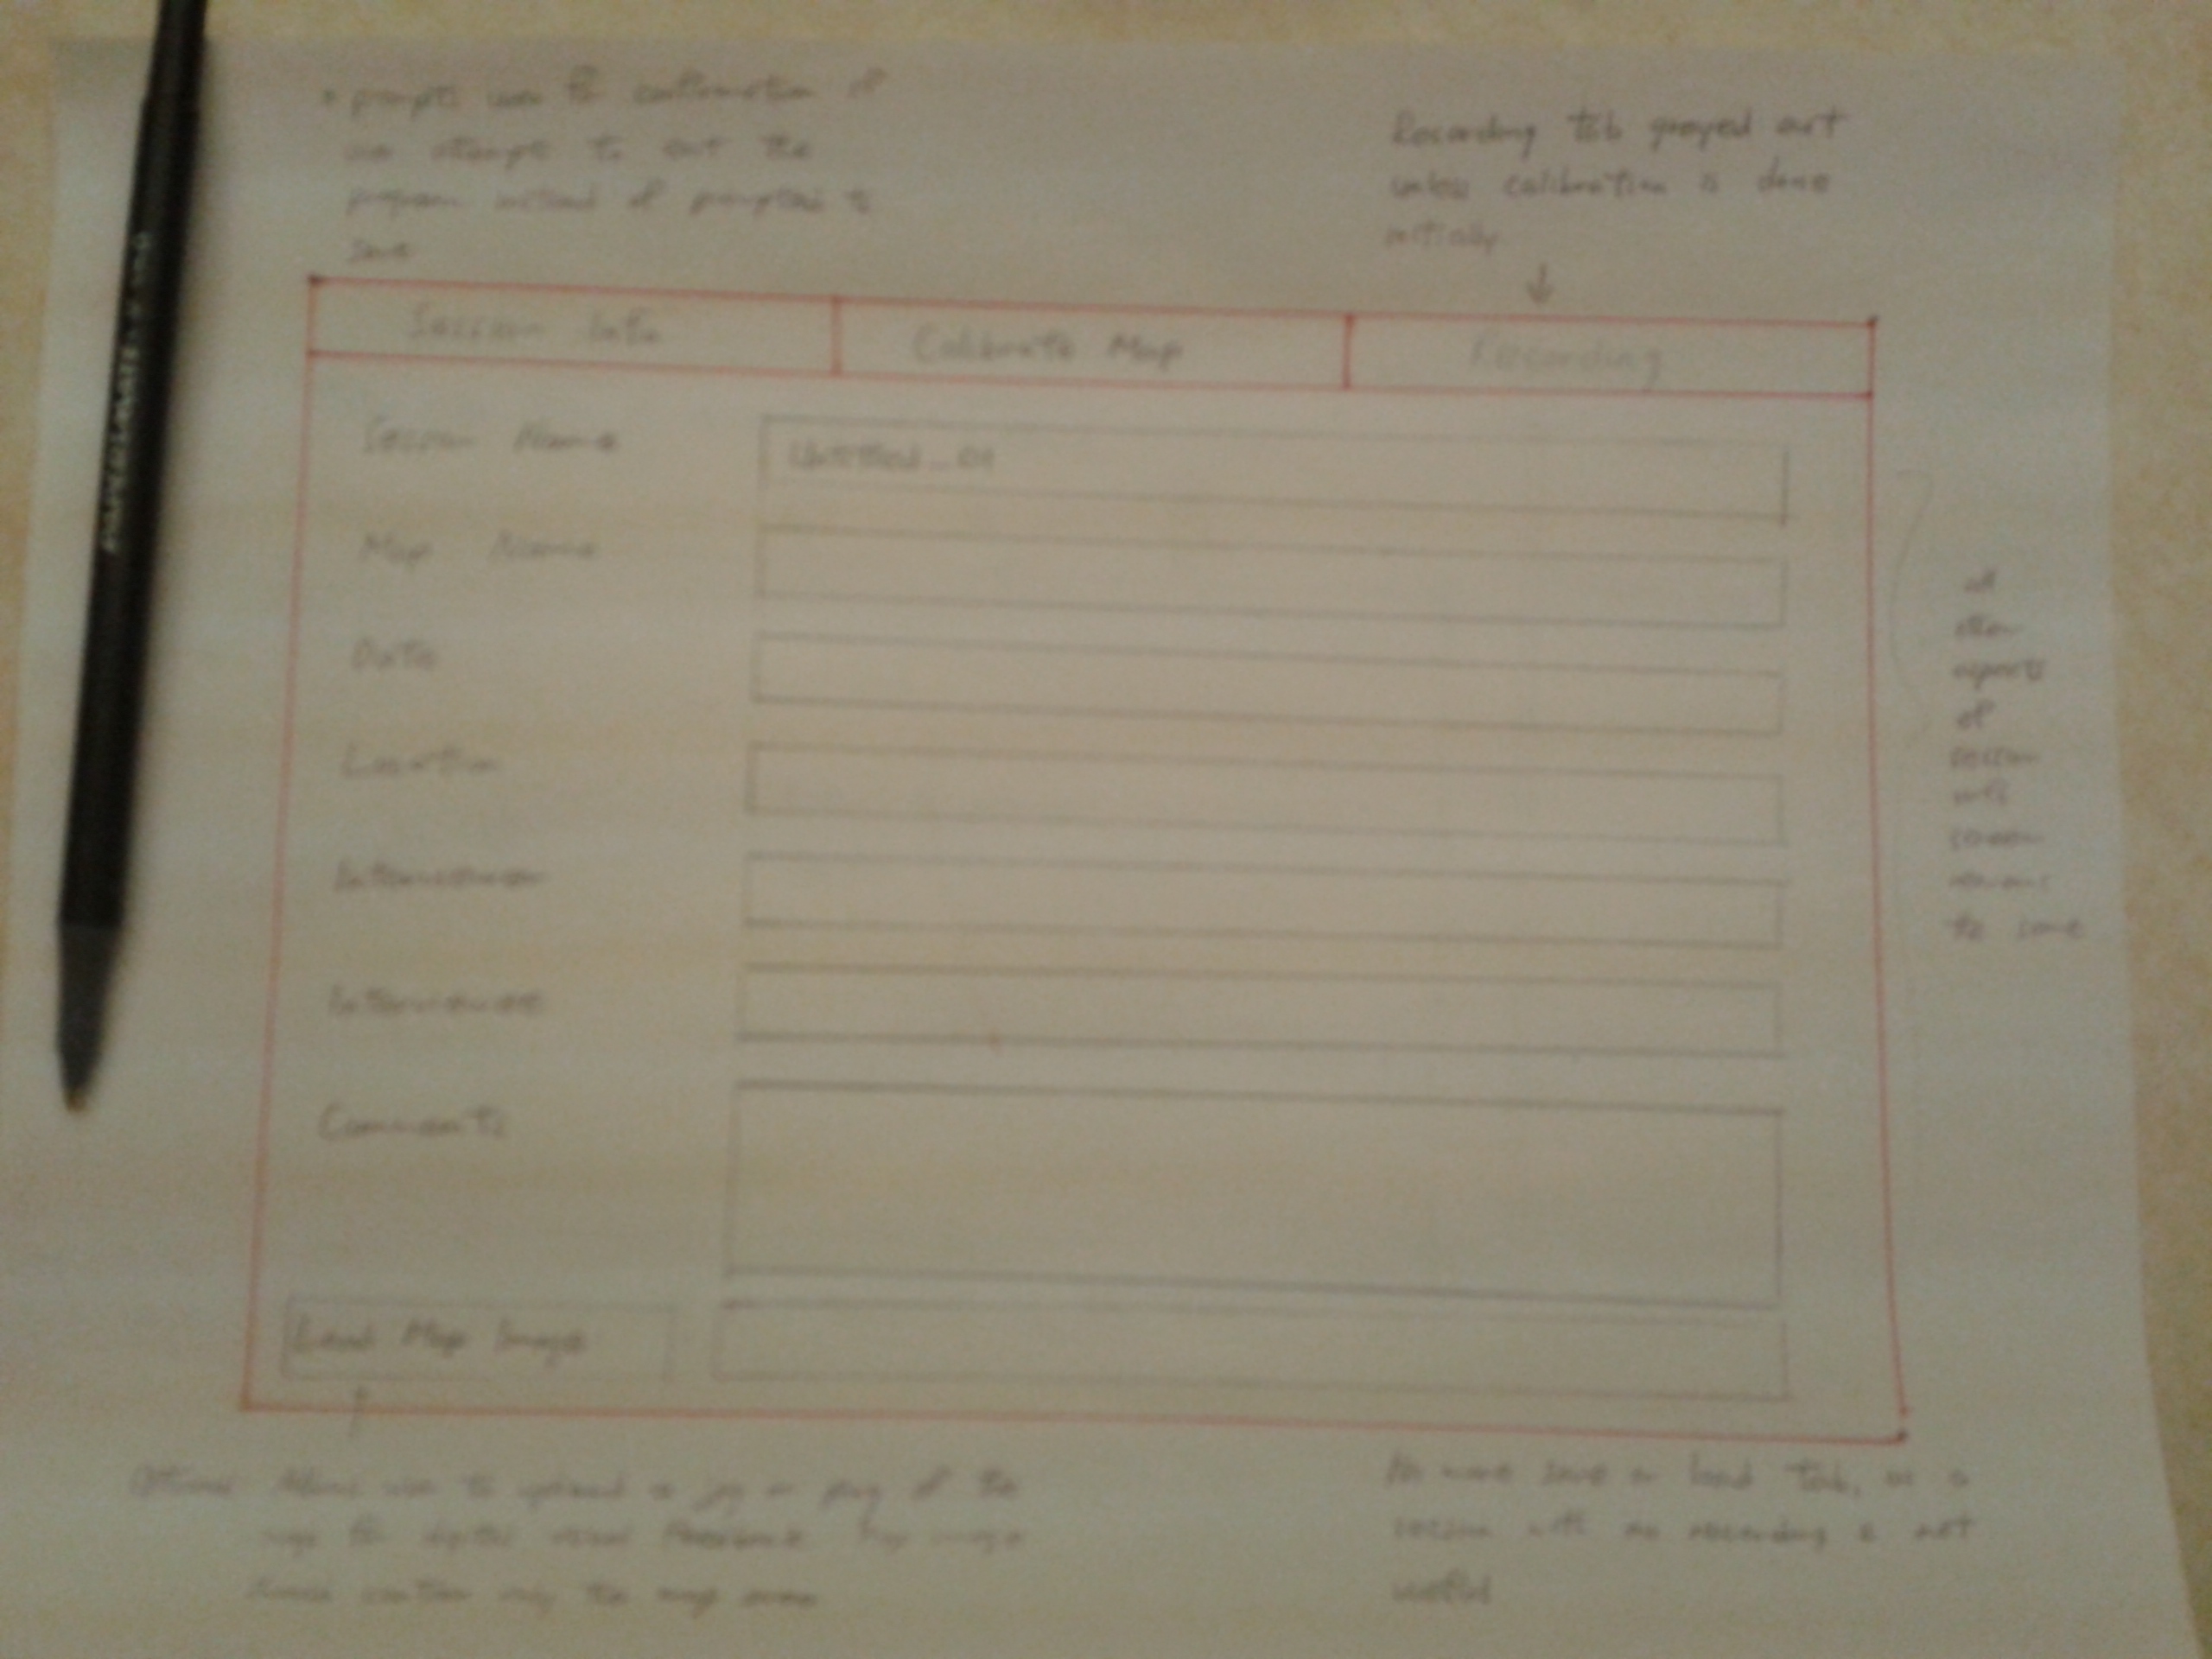 * prompts user for confirmation if
user attempts to exit the
program instead of prompted to
save
Recording tab greyed out
unless calibration is done
initially
Session Info
Calibrate Map
Recording
Session Name
Untitled_01
Map Name
Date
Location
Interviewer
Interviewee
Comments
Load Map Image
all
other
aspects
of
session
info
screen
remains
the same
PAPERMATE
Allows user to upload a jpg or png of the
map for digital visual Map image
should contain only the map area
No more save or load tab, as a
session with no recording is not
useful